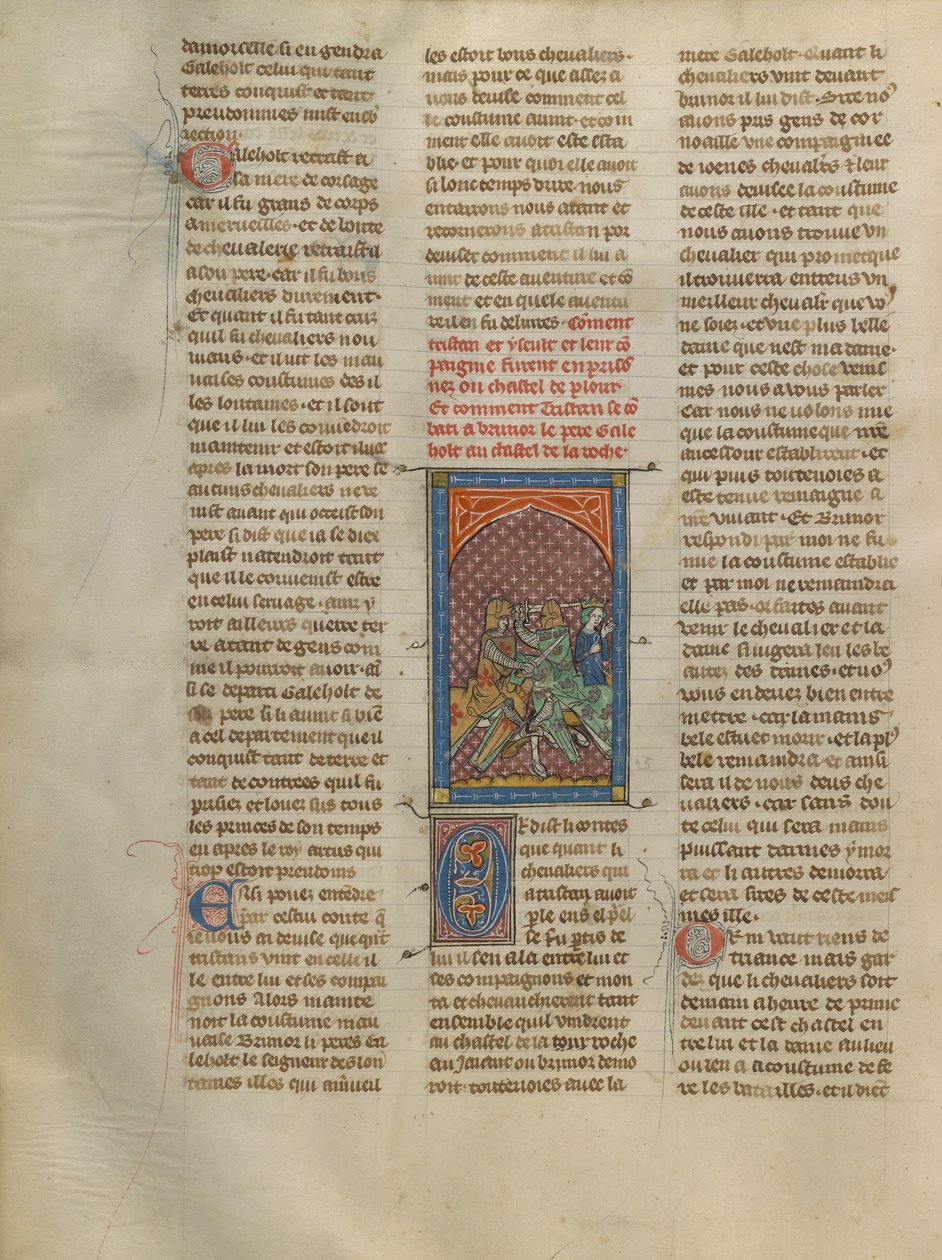 damoiselle si engendra
Galeholt celui qui tant
terres conquist et tant
preudommes mist en sub
iection
Galeholt retraist a
sa mere de corsage
car il fu grans de corps
a merueilles. et de bonte
de cheualerie retraist il
a son pere. car il fu bons
cheualiers durement.
Et quant il fu tant car
quil fu cheualiers nou
uiaus. et il uit les mau
uaises coustumes des il
les lontaines. et il sout
que il lui les conuedroit
maintenir et estoit illuec
apres la mort son pere se
aucuns cheualiers ne ve
nist auant qui occeist son
pere si dist que ia se dieu
plaist natendroit tant
que il le conuenist estre
en celui seruage. ainz y
roit ailleurs querre ter
re atant de gens com
me il pourroit auoir. ain
si se departi Galeholt de
son pere si li auint si bien
a cel departement que il
conquist tant de terre et
tant de contrees quil fu
prisiez et louez sus tous
les princes de son temps
en apres le roy artus qui
trop estoit preudoms
Ensi pouez entendre
par cestui conte q̄
ie uous ai deuise que qn̄t
tristans vint en celle il
le entre lui et ses compai
gnons Alors mainte
noit la coustume mau
uaise Brunor li peres Ga
leholt le seigneur des lon
taines illes qui a mer ueil
les estoit bons cheualiers.
mais pour ce que assez a
uous deuise comment cel
le coustume auint. et com
ment elle auoit este esta
blie. et pour quoi elle auoit
si lonc temps dure nous
entarrons nous atant et
retornerons a tristan por
deuiser comment il lui a
uint de ceste auenture et cō
ment et en quele auentu
re il en fu deliures. Cōment
tristan et yseult et leur cō
paignie furent en priso
nez ou chastel de plour
Et comment Tristan se cō
bati a brunor le pere Gale
holt au chastel de la roche
Or dist li contes
que quant li
cheualiers qui
a tristan auoit
ple ens el pel
se fu ptis de
lui il sen ala entre lui et
ses compaignons et mon
ta et cheuauchierent tant
ensemble quil vindrent
au chastel de la tour roche
au Jaiant ou brunor demo
roit. touteuoies auec la
mere Galeholt. Quant li
cheualiers vint deuant
brunor il lui dist. Sire no⁹
auons pris gens de cor
noaille vne compaignee
de ioenes cheualīrs et leur
auons deuisee la coustume
de ceste ille. et tant que
nous auons trouue vn
cheualier qui promet que
il trouuerra entreus vn
meilleur cheualīr que vo⁹
ne soiez. et vne plus belle
dame que nest madame.
et pour ceste chose venis
mes nous a vous parler
Car nous ne volons mie
que la coustume que nr̄e
ancessour establirent. et
qui puis touteuoies a
este tenue remaigne a
nr̄e viuant. Et Brunor
respondi par moi ne fu
mie la coustume establie
et par moi ne remaindra
elle pas. or faites auant
venir le cheualier et la
dame si iugera len les be
autez des dames. et uo⁹
vous en deuez bien entre
mettre. car la mains
bele estuet morir. et la pl⁹
bele remaindra. et ainsi
sera il de nous deus che
ualiers. car sans dou
te celui qui sera mains
puissant darmes y mor
ra et li autres demorra
et sera sires de ceste meis
mes ille.
Or ni vaut riens de
triance mais gar
dez que li cheualiers soit
demain a heure de prime
deuant cest chastel en
tre lui et la dame au lieu
ou len a acoustume de fe
re les batailles. et il dient